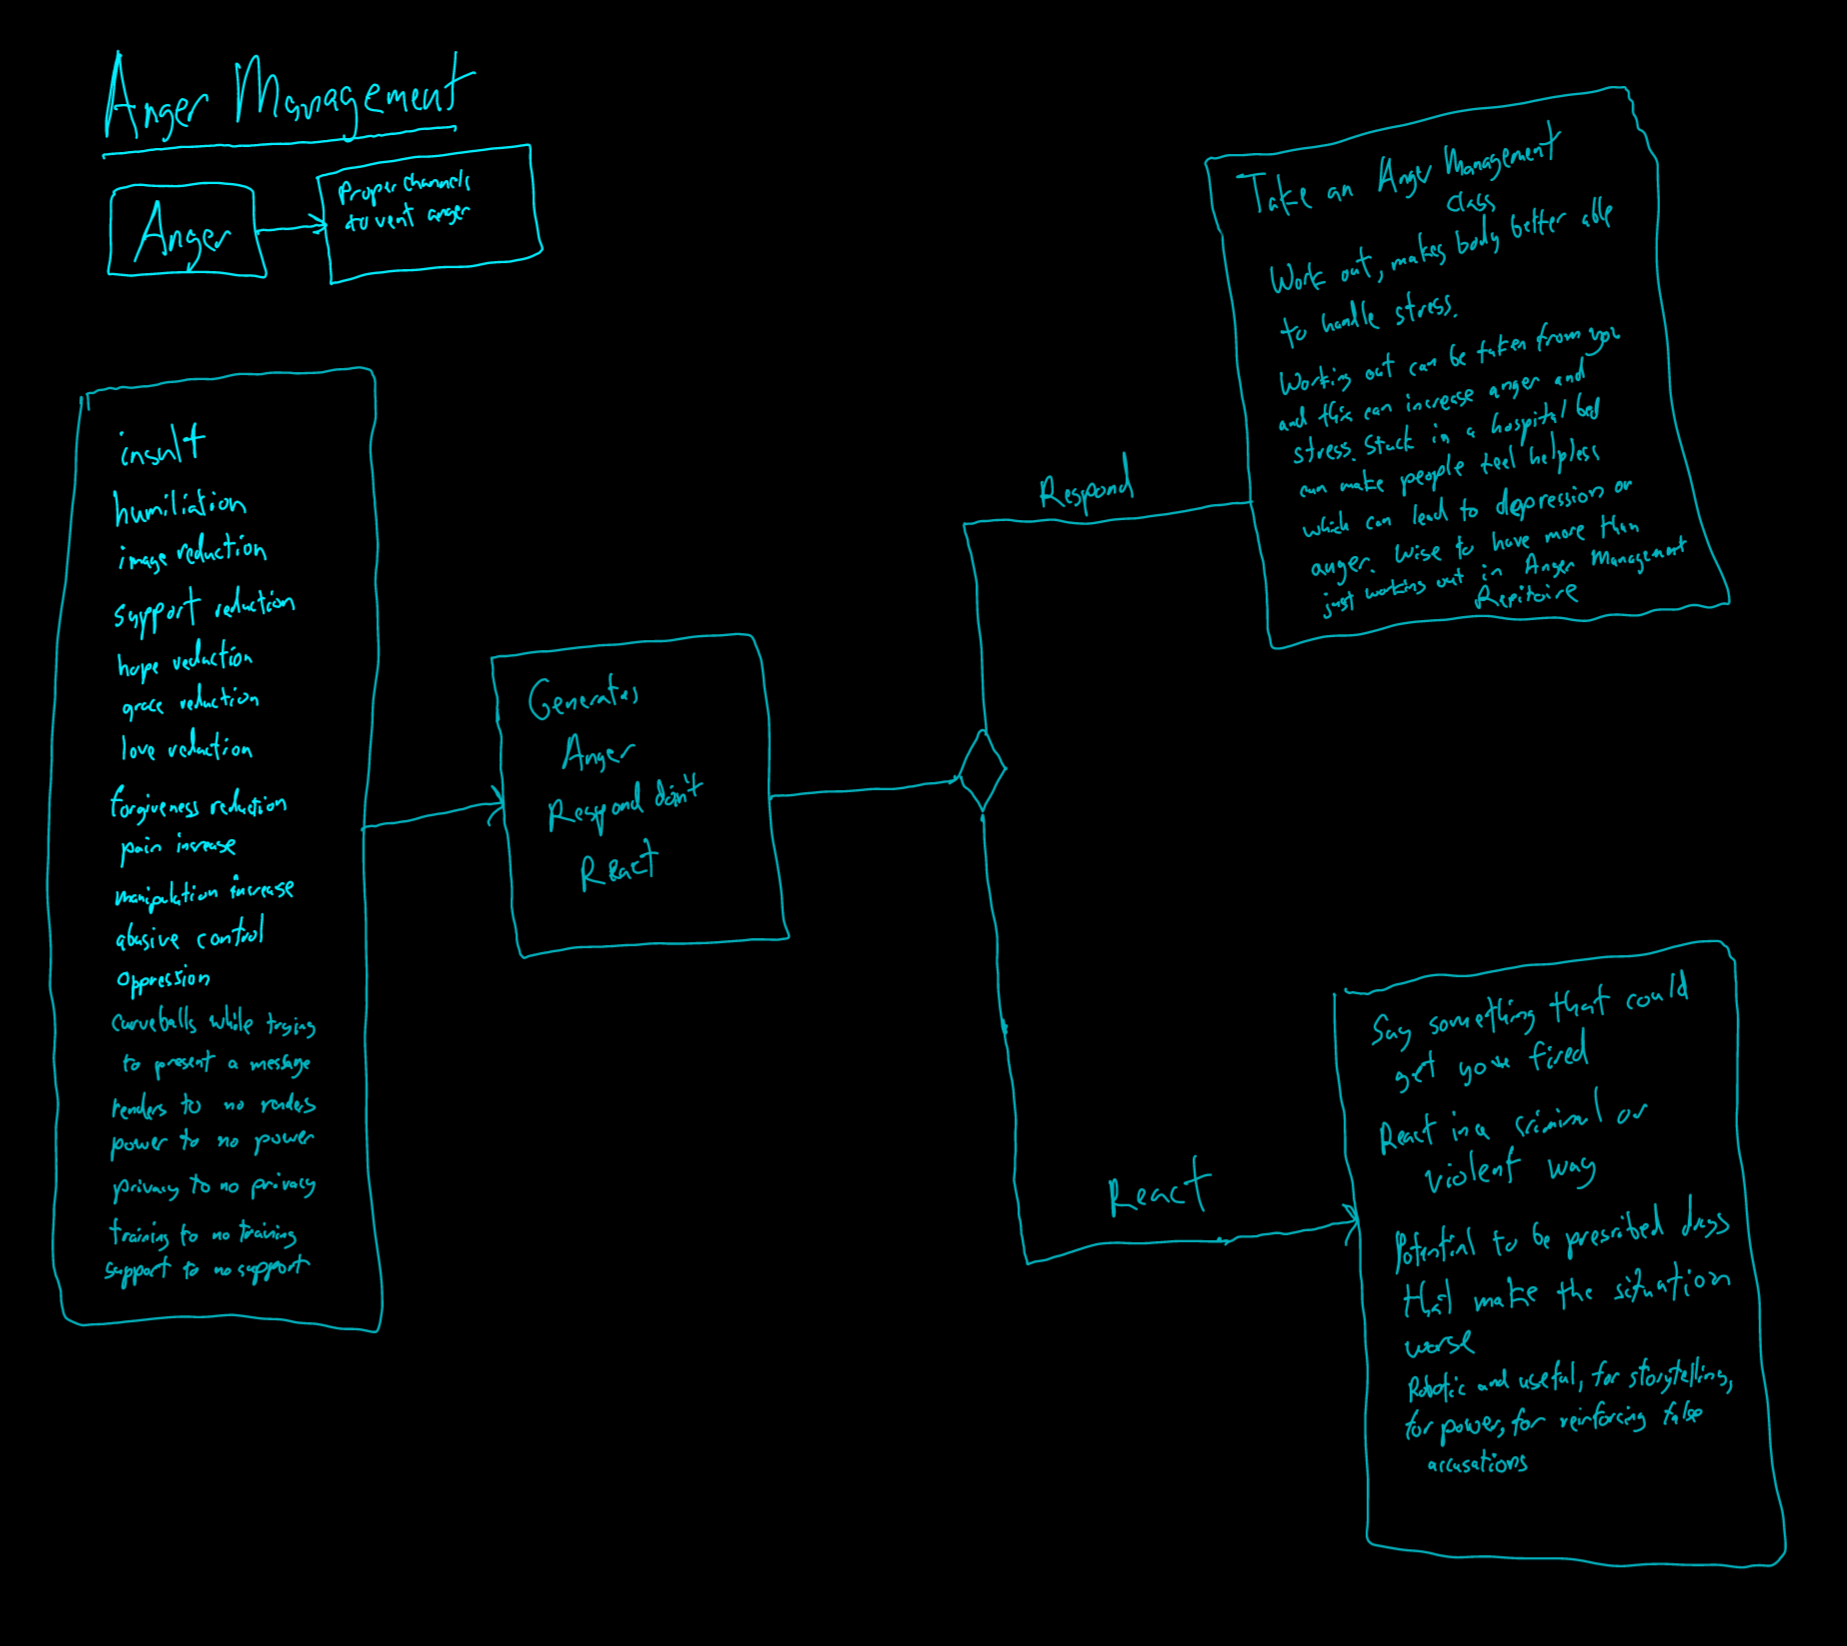 Anger Management
Anger
Proper channels
to vent anger
insult
humiliation
image reduction
support reduction
hope reduction
grace reduction
love reduction
forgiveness reduction
pain increase
manipulation increase
abusive control
oppression
curveballs while trying
to present a message
renders to no renders
power to no power
privacy to no privacy
training to no training
support to no support
Generates
Anger
Respond don't
React
Respond
Take an Anger Management
class
Work out, makes body better able
to handle stress.
Working out can be taken from you
and this can increase anger and
stress. Stuck in a hospital bed
can make people feel helpless
which can lead to depression or
anger. Wise to have more than
just working out in Anger Management
Repitoire
React
Say something that could
get you fired
React in a criminal or
violent way
Potential to be presribed drugs
that make the situation
worse
Robotic and useful, for storytelling,
for power, for reinforcing false
accusations